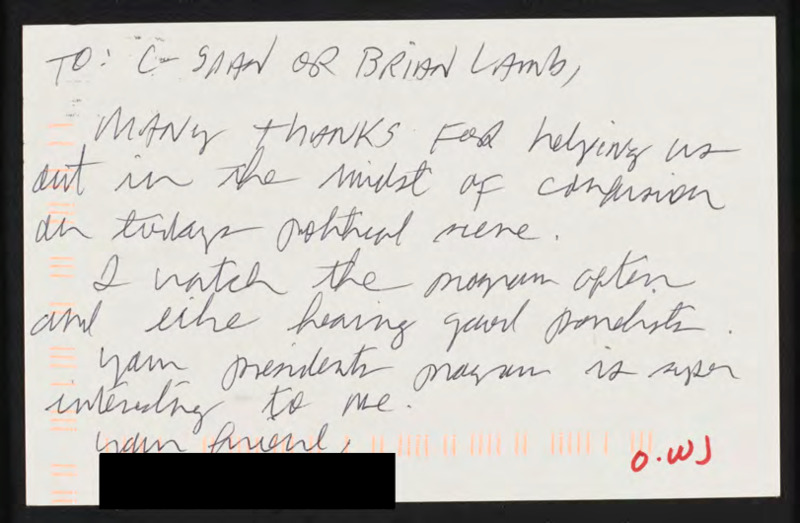 TO: C-SPAN OR BRIAN LAMB,
MANY THANKS FOR helping us
out in the midst of confusion
in todays political scene.
I watch the program often
and like hearing good pundits.
your presidents program is super
interesting to me.
your friend,
O.WJ